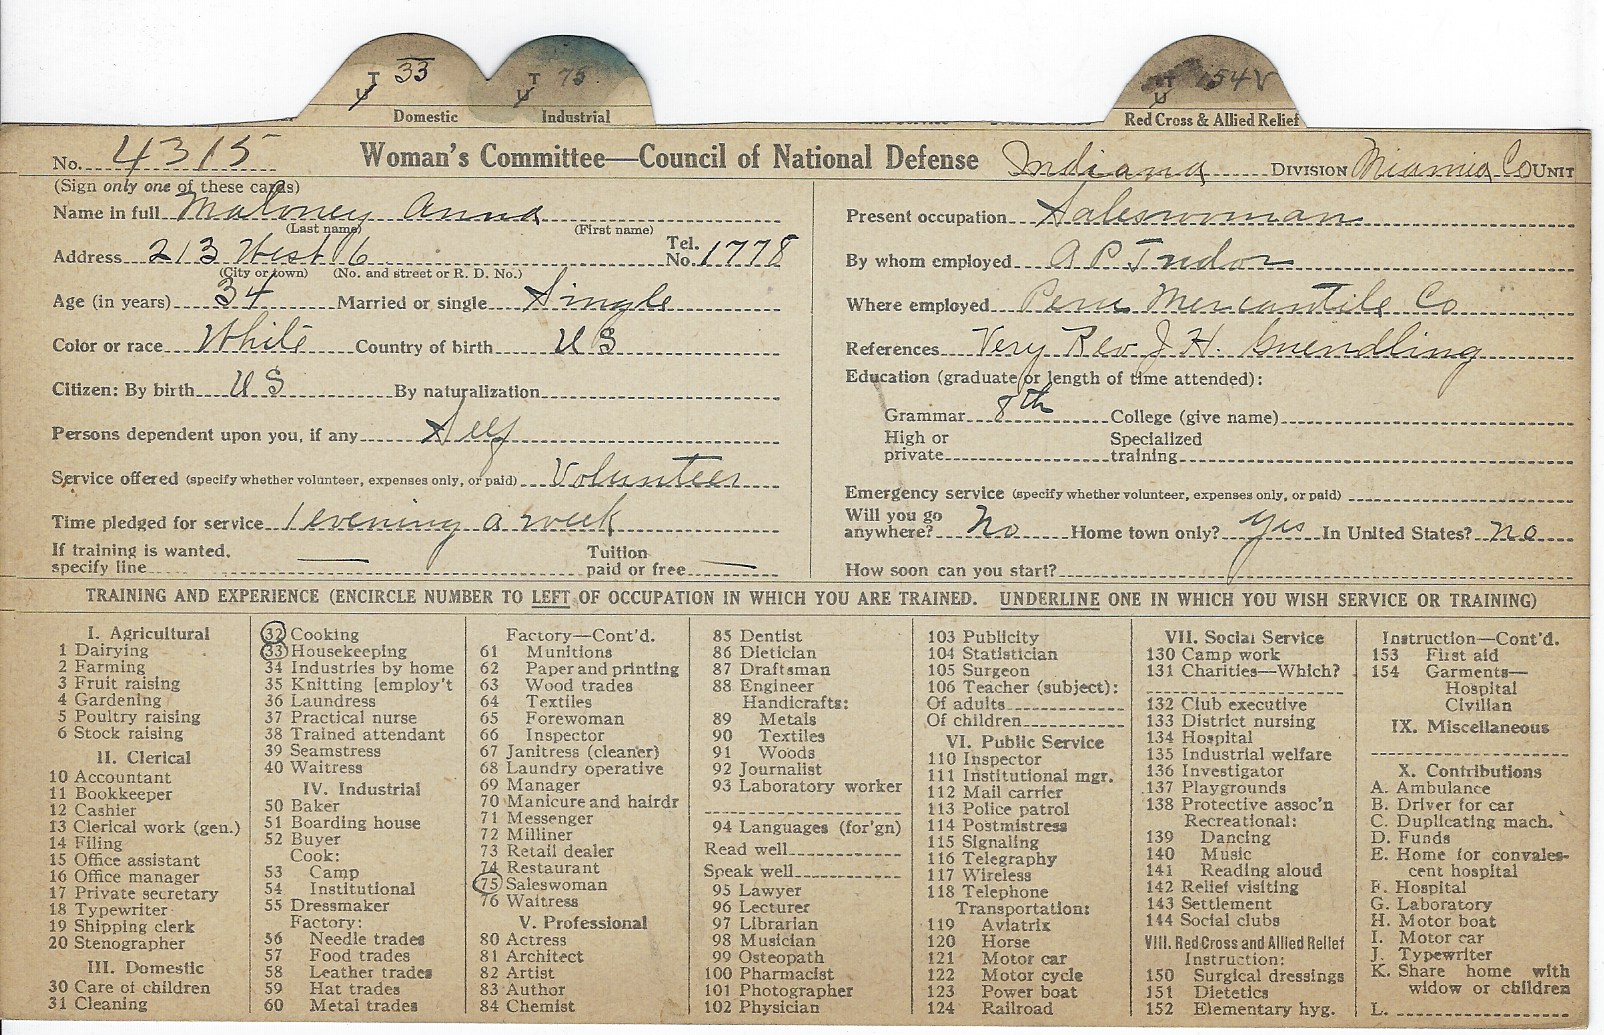 T U 33 T U 75 T U 154 V
Domestic Industrial Red Cross & Allied Relief
No. 4315 Woman's Committee—Council of National Defense Indiana DIVISION Miamia Co UNIT
(Sign only one of these cards)
Name in full Maloney Anna
(Last name) (First name)
Address 213 West 6 Tel. No. 1778
(City or town) (No. and street or R. D. No.)
Age (in years) 34 Married or single Single
Color or race White Country of birth U S
Citizen: By birth U S By naturalization
Persons dependent upon you, if any Self
Service offered (specify whether volunteer, expenses only, or paid) Volunteer
Time pledged for service 1 evening a week
If training is wanted, Tuition
specify line — paid or free —
Present occupation Saleswoman
By whom employed A P Tudor
Where employed Peru Mercantile Co
References Very Rev J. H. Guendling
Education (graduate or length of time attended):
Grammar 8th College (give name)
High or Specialized
private training
Emergency service (specify whether volunteer, expenses only, or paid)
Will you go
anywhere? No Home town only? Yes In United States? no
How soon can you start?
TRAINING AND EXPERIENCE (ENCIRCLE NUMBER TO LEFT OF OCCUPATION IN WHICH YOU ARE TRAINED. UNDERLINE ONE IN WHICH YOU WISH SERVICE OR TRAINING)
I. Agricultural
1 Dairying
2 Farming
3 Fruit raising
4 Gardening
5 Poultry raising
6 Stock raising
II. Clerical
10 Accountant
11 Bookkeeper
12 Cashier
13 Clerical work (gen.)
14 Filing
15 Office assistant
16 Office manager
17 Private secretary
18 Typewriter
19 Shipping clerk
20 Stenographer
III. Domestic
30 Care of children
31 Cleaning
32 Cooking
33 Housekeeping
34 Industries by home
35 Knitting [employ't
36 Laundress
37 Practical nurse
38 Trained attendant
39 Seamstress
40 Waitress
IV. Industrial
50 Baker
51 Boarding house
52 Buyer
Cook:
53 Camp
54 Institutional
55 Dressmaker
Factory:
56 Needle trades
57 Food trades
58 Leather trades
59 Hat trades
60 Metal trades
Factory—Cont'd.
61 Munitions
62 Paper and printing
63 Wood trades
64 Textiles
65 Forewoman
66 Inspector
67 Janitress (cleaner)
68 Laundry operative
69 Manager
70 Manicure and hairdr
71 Messenger
72 Milliner
73 Retail dealer
74 Restaurant
75 Saleswoman
76 Waitress
V. Professional
80 Actress
81 Architect
82 Artist
83 Author
84 Chemist
85 Dentist
86 Dietician
87 Draftsman
88 Engineer
Handicrafts:
89 Metals
90 Textiles
91 Woods
92 Journalist
93 Laboratory worker
94 Languages (for'gn)
Read well
Speak well
95 Lawyer
96 Lecturer
97 Librarian
98 Musician
99 Osteopath
100 Pharmacist
101 Photographer
102 Physician
103 Publicity
104 Statistician
105 Surgeon
106 Teacher (subject):
Of adults
Of children
VI. Public Service
110 Inspector
111 Institutional mgr.
112 Mail carrier
113 Police patrol
114 Postmistress
115 Signaling
116 Telegraphy
117 Wireless
118 Telephone
Transportation:
119 Aviatrix
120 Horse
121 Motor car
122 Motor cycle
123 Power boat
124 Railroad
VII. Social Service
130 Camp work
131 Charities—Which?
132 Club executive
133 District nursing
134 Hospital
135 Industrial welfare
136 Investigator
137 Playgrounds
138 Protective assoc'n
Recreational:
139 Dancing
140 Music
141 Reading aloud
142 Relief visiting
143 Settlement
144 Social clubs
VIII. Red Cross and Allied Relief
Instruction:
150 Surgical dressings
151 Dietetics
152 Elementary hyg.
Instruction—Cont'd.
153 First aid
154 Garments—
Hospital
Civilian
IX. Miscellaneous
X. Contributions
A. Ambulance
B. Driver for car
C. Duplicating mach.
D. Funds
E. Home for convales-
cent hospital
F. Hospital
G. Laboratory
H. Motor boat
I. Motor car
J. Typewriter
K. Share home with
widow or children
L.